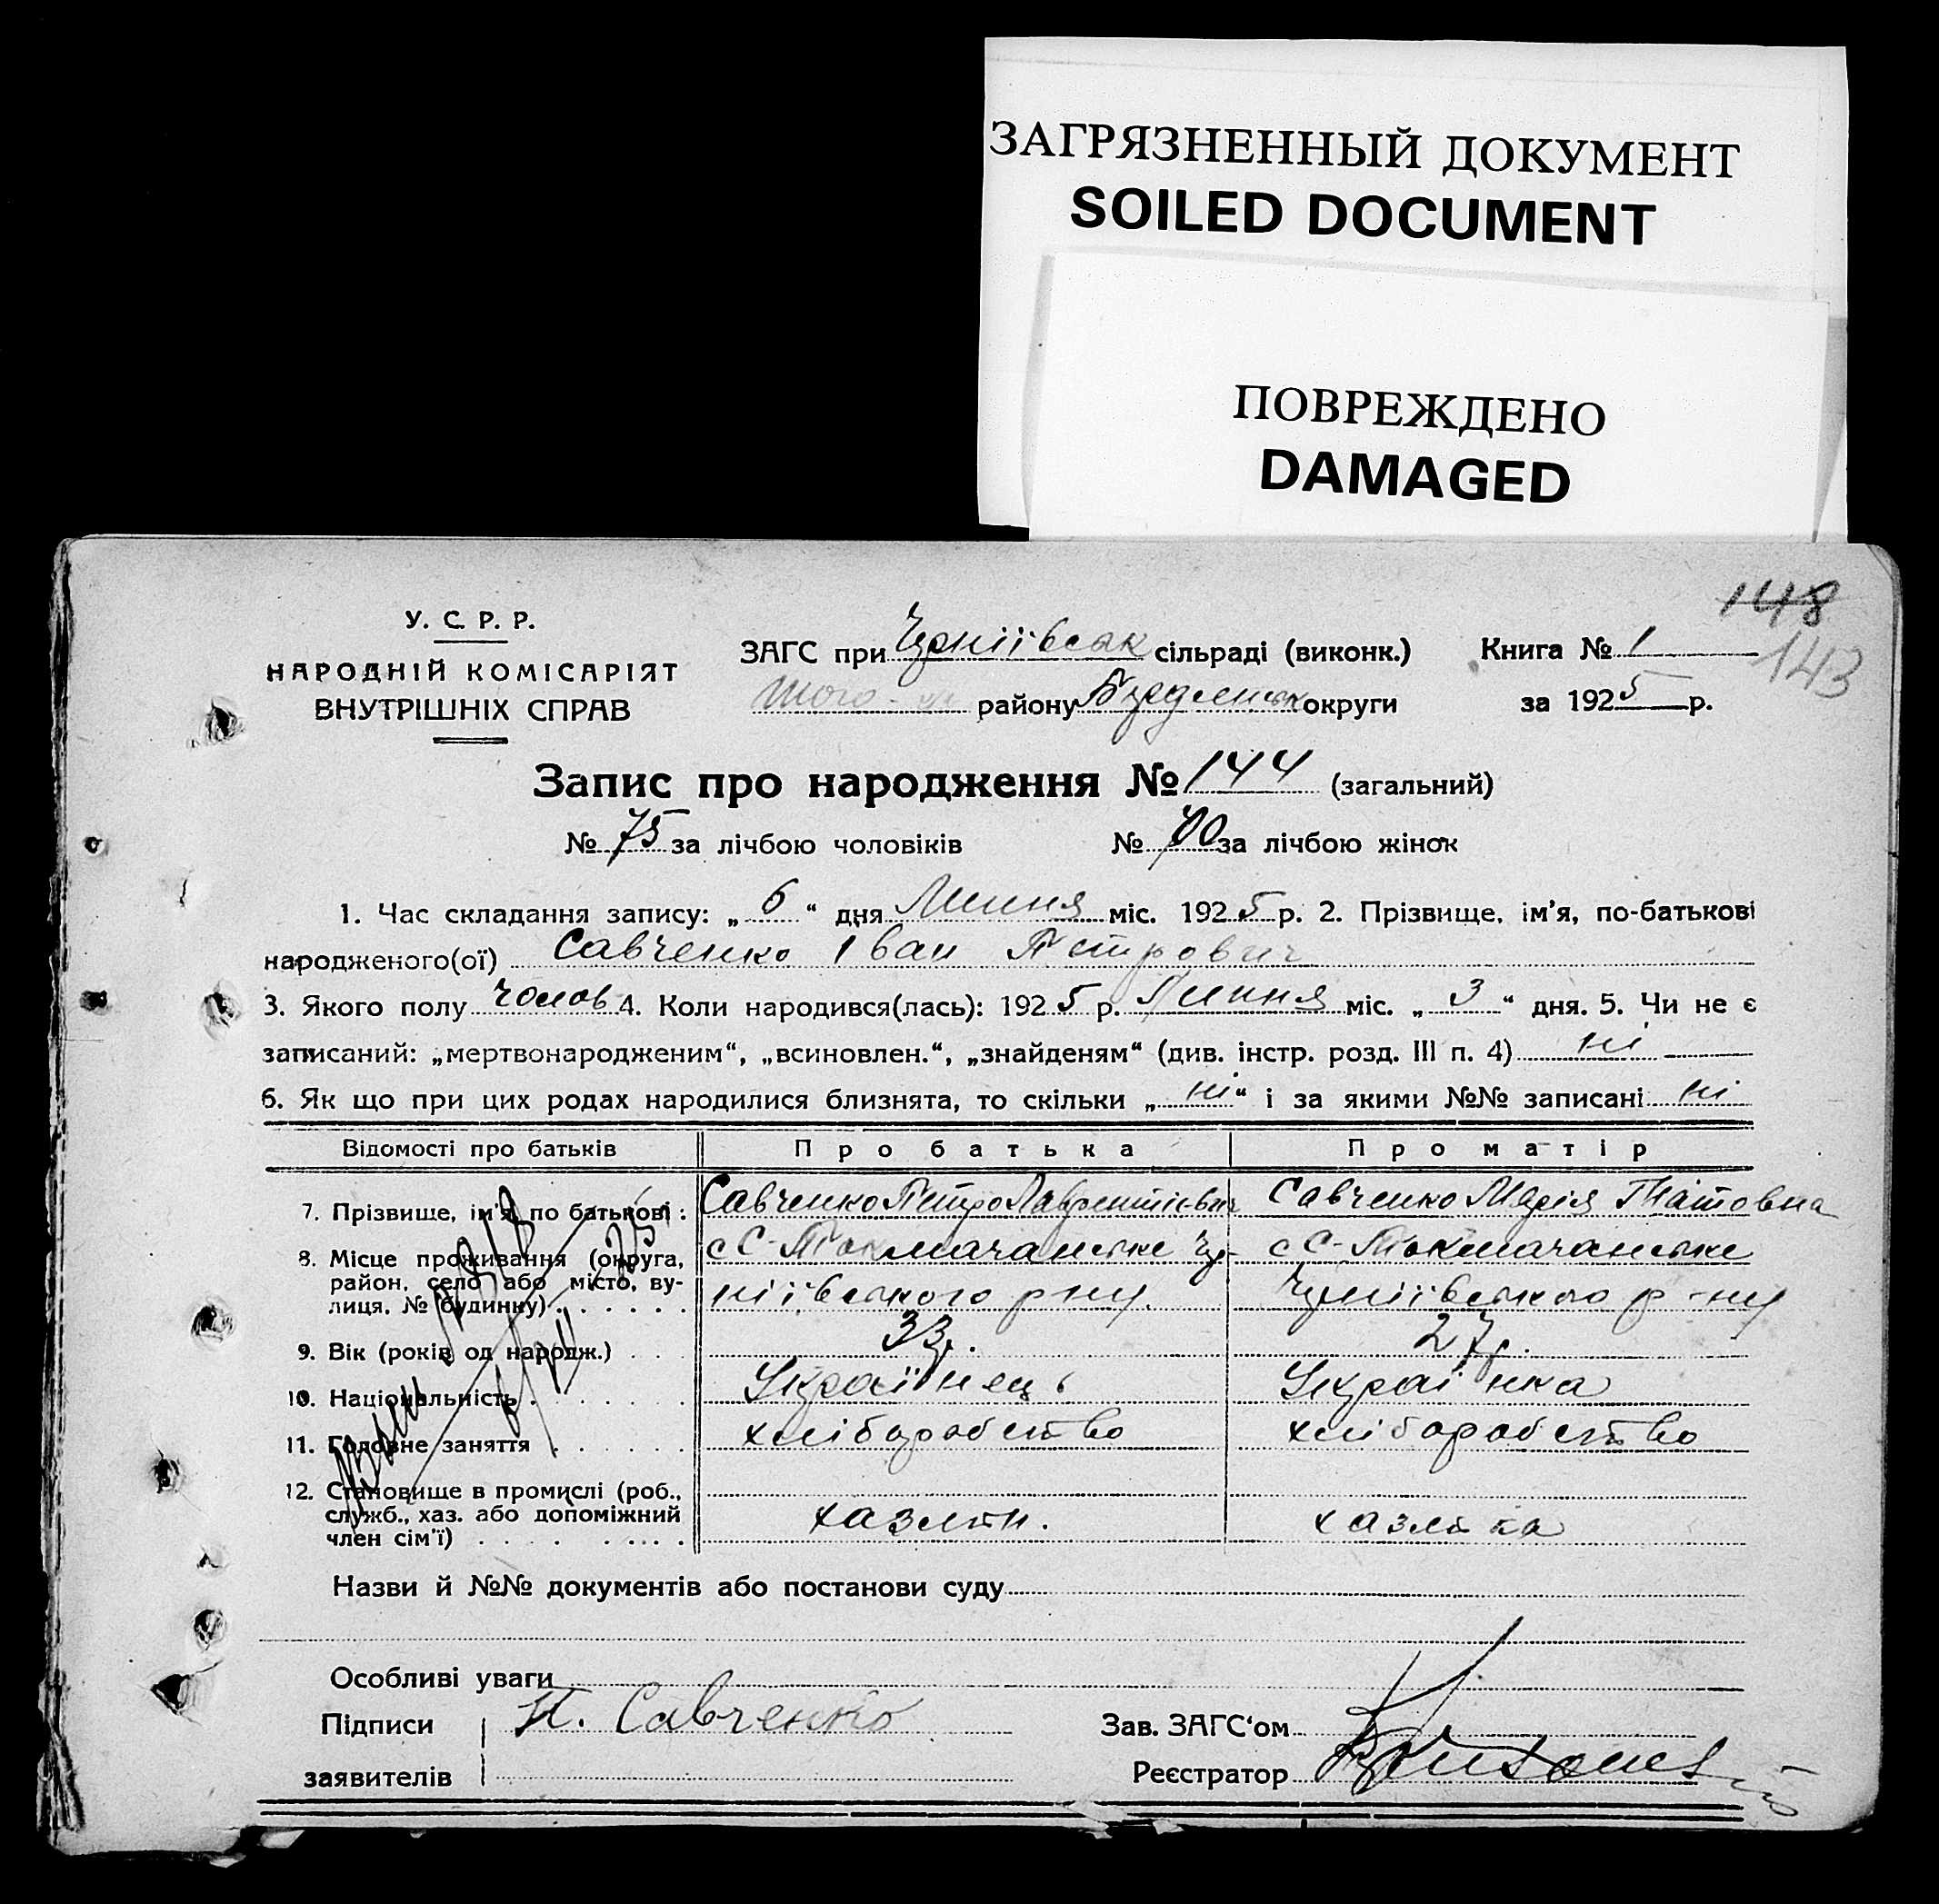 ЗАГРЯЗНЕННЫЙ ДОКУМЕНТ
SOILED DOCUMENT
ПОВРЕЖДЕНО
DAMAGED
148
143
У. С. Р. Р.
НАРОДНІЙ КОМІСАРІЯТ
ВНУТРІШНІХ СПРАВ
ЗАГС при сільраді (виконк.) Книга № 1
району округи за 1925 р.
Запис про народження № 144 (загальний)
№ 75 за лічбою чоловіків № 70 за лічбою жінок
1. Час складання запису: „ 6 “ дня Липня міс. 1925 р. 2. Прізвище, ім’я, по-батькові
народженого(ої) Савченко Іван Петрович
3. Якого полу чолов 4. Коли народився(лась): 1925 р. Липня міс. „ 3 “ дня. 5. Чи не є
записаний: „мертвонародженим“, „всиновлен.“, „знайденям“ (див. інстр. розд. III п. 4) ні
6. Як що при цих родах народилися близнята, то скільки „ ні “ і за якими №№ записані ні
Відомості про батьків Про батька Про матір
7. Прізвище, ім’я, по батькові: Савченко Петро Савченко Марія Титовна
8. Місце проживання (округа, район, село або місто, вулиця, № будинку) с С-Токмачанське с С-Токмачанське
9. Вік (років од народж.) 33 р. 27 р.
10. Національність Українець Українка
11. Головне заняття хліборобство хліборобство
12. Становище в промислі (роб., служб., хаз. або допоміжний член сім’ї) хазяїн. хазяйка
Назви й №№ документів або постанови суду
Особливі уваги
Підписи П. Савченко Зав. ЗАГС‘ом
заявителів Реєстратор